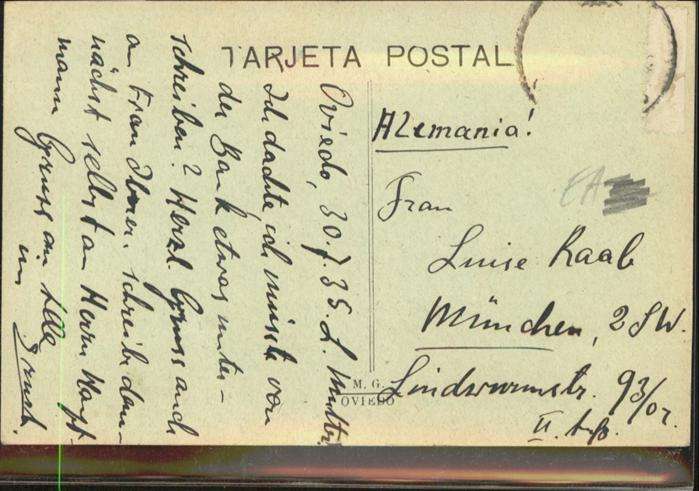 TARJETA POSTAL
Alemania!
Frau
Luise Raab
München, 2 SW.
Lindwurmstr. 93/0r.
II.
M. G.
OVIEDO
Oviedo, 30.7.35. L. Mutter
Ich dachte, ich müsste von
der Bank etwas unter-
schreiben? Herzl. Gruss auch
an Frau schreibe dem-
nächst selbst an Herrn
mann Gruss an Alle
Ernst.